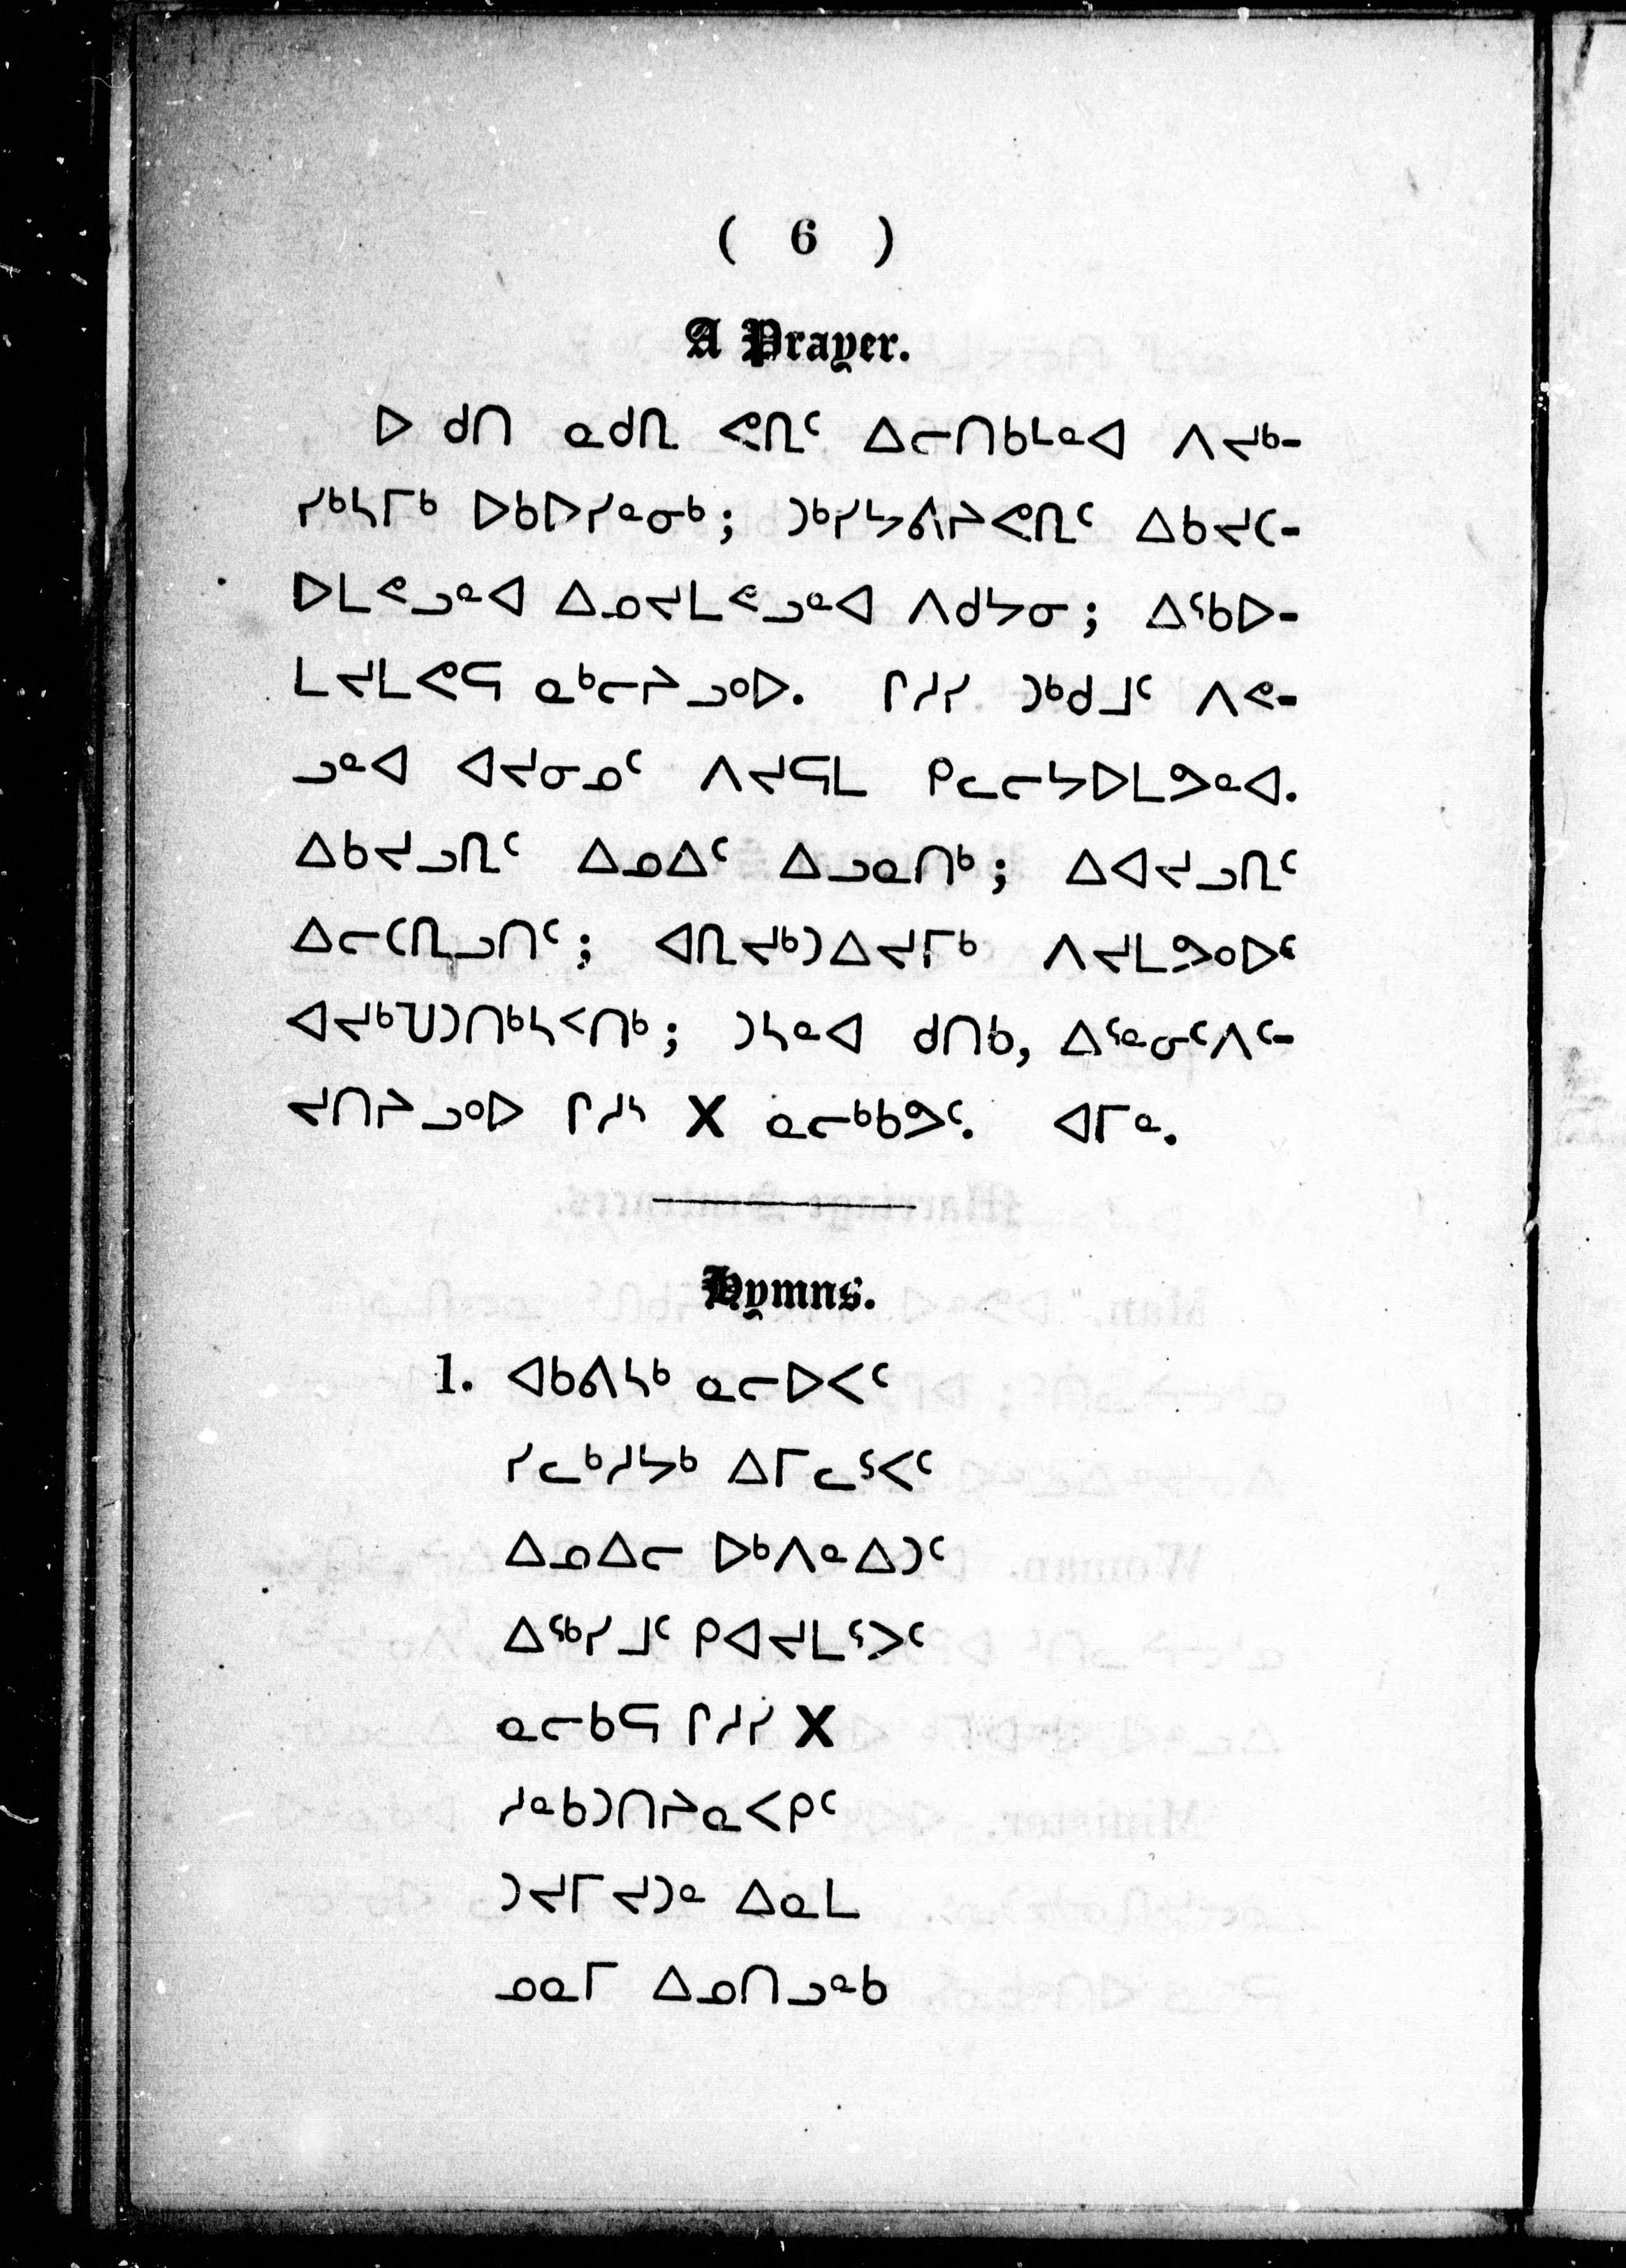 ( 6 )
A Prayer.
ᐅ ᑯᑎ ᓇᑯᕇ ᕙᕇᑦ ᐃᓕᑎᑲᒻᓇᐊ ᐱᔪᒃ-
ᓯᒃᓴᒥᒃ ᐅᑲᐅᓯᓐᓂᒃ; ᑐᒃᓯᔭᕕᔨᕙᕇᑦ ᐃᑲᔪᑕ-
ᐅᒪᕙᓗᓐᐊ ᐃᓄᔪᒪᕙᓗᓐᐊ ᐱᑯᔭᓂ; ᐃᖃᐅ-
ᒪᔪᒪᕙᕋ ᓇᒃᓕᔨᓗᐤᐅ. ᒋᓱᓯ ᑐᒃᑯᒧᑦ ᐱᕙ-
ᓗᓐᐊ ᐊᔪᓂᓄᑦ ᐱᔪᕋᒪ ᑭᓚᓕᔭᐅᒪᕗᓐᐊ.
ᐃᑲᔪᓗᕇᑦ ᐃᓄᐃᑦ ᐃᓗᓇᑎᒃ; ᐃᐊᔪᓗᕇᑦ
ᐃᓕᑕᕇᓗᑎᑦ; ᐊᕇᔪᒃᑐᐃᔪᒥᒃ ᐱᔪᒪᕗᐤᐅᑦ
ᐊᔪᒃᕈᑐᑎᒃᓴᑉᑎᒃ; ᑐᓴᓐᐊ ᑯᑎᑲ, ᐃᕐᓐᓂᑦᐱᑦ-
ᔪᑎᔨᓗᐤᐅ ᒋᓱᔅ X ᓇᓕᒃᑲᕗᑦ. ᐊᒥᓐ.
Hymns.
1. ᐊᑲᕕᓴᒃ ᓇᓕᐅᐸᑦ
ᓯᓚᒃᓱᔭᒃ ᐃᒥᓚᕐᐸᑦ
ᐃᓄᐃᓕ ᐅᒃᐱᓐᐃᑐᑦ
ᐃᖅᓯᒧᑦ ᑭᐊᔪᒪᕐᐳᑦ
ᓇᓕᑲᕋ ᒋᓱᓯ X
ᓱᓐᑲᑐᑎᔨᓇᐸᑭᑦ
ᑐᔪᒥᔪᑐᓐ ᐃᓇᒪ
ᓄᓇᒥ ᐃᓄᑎᓗᓐᑲ